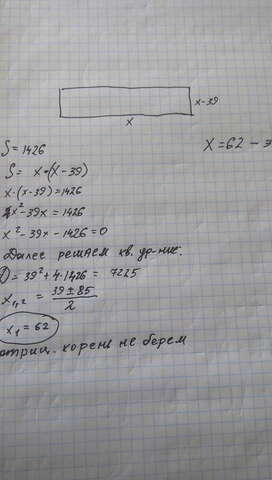 x-39
x
S=1426
X=62 - э
S= x·(x-39)
x·(x-39)=1426
x²-39x=1426
x²-39x-1426=0
Далее решаем кв. ур-ние.
D=39²+4·1426= 7225
x₁,₂ = (39±85)/2
x₁=62
отриц. корень не берем